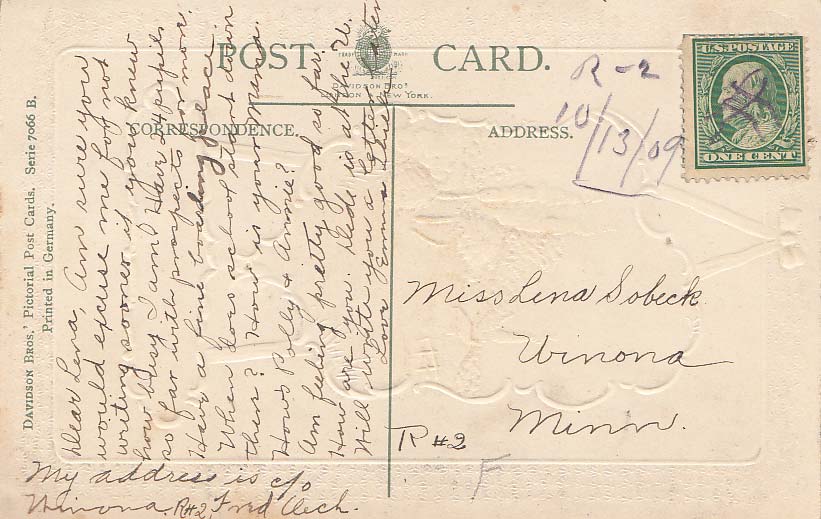 POST CARD.
TRADE MARK
DAVIDSON BROS
LONDON & NEW YORK.
CORRESPONDENCE.
ADDRESS.
DAVIDSON BROS.' Pictorial Post Cards. Serie 7066 B.
Printed in Germany.
U.S. POSTAGE
ONE CENT
R-2
10/13/09
Dear Lena, Am sure you
would excuse me for not
writing sooner if you knew
how busy I am! Have 24 pupils
so far with prospects for more.
Have a fine boarding place.
When does school start down
there? How is your Mama.
Hows Polly & Annie?
Am feeling pretty good so far.
How are you. Dide is at the U.
Will write you a letter later
Love Emma
My address is c/o
Winona R#2, Fred
Miss Lena Sobeck
Winona
Minn.
R#2
F